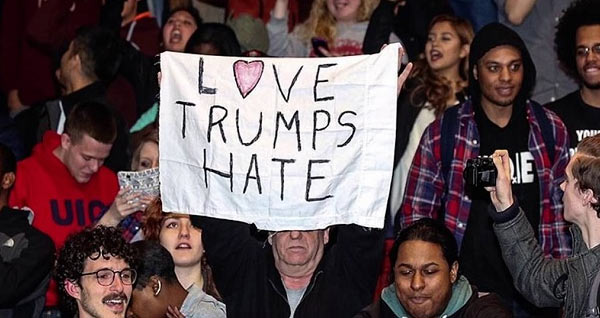 L♥VE
TRUMPS
HATE
UIC
YOU